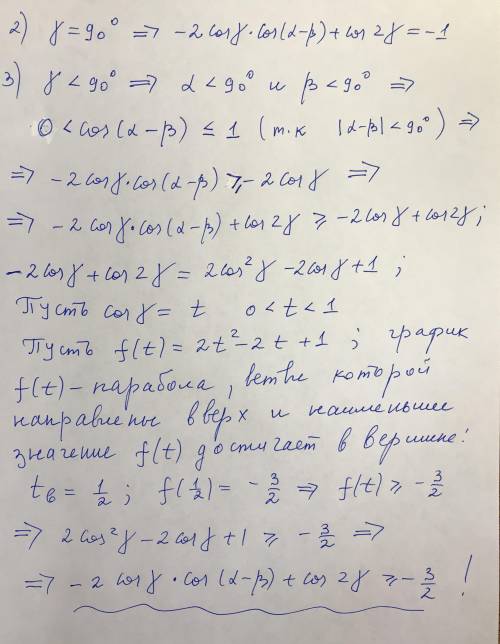 2) γ = 90° ⇒ -2cosγ·cos(α-β)+cos2γ = -1
3) γ < 90° ⇒ α < 90° и β < 90° ⇒
0 < cos(α-β) ≤ 1 (т.к |α-β| < 90°) ⇒
⇒ -2cosγ·cos(α-β) ≥ -2cosγ ⇒
⇒ -2cosγ·cos(α-β) + cos2γ ≥ -2cosγ + cos2γ;
-2cosγ + cos2γ = 2cos²γ - 2cosγ + 1 ;
Пусть cosγ = t 0 < t < 1
Пусть f(t) = 2t² - 2t + 1 ; график
f(t) - парабола, ветве которой
направлены вверх и наименьшее
значение f(t) достигает в вершине!
tв = 1/2 ; f(1/2) = -3/2 ⇒ f(t) ≥ -3/2
⇒ 2cos²γ - 2cosγ + 1 ≥ -3/2 ⇒
⇒ -2cosγ·cos(α-β) + cos2γ ≥ -3/2 !